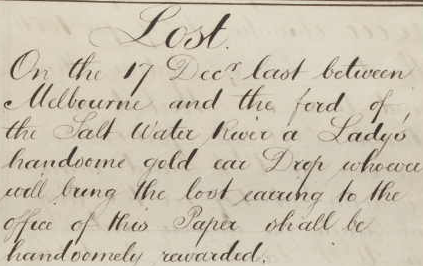 Lost.
On the 17 Decr last between
Melbourne and the ford of
the Salt Water River a Lady's
handsome gold ear Drop whoever
will bring the lost earring to the
office of this Paper shall be
handsomely rewarded.